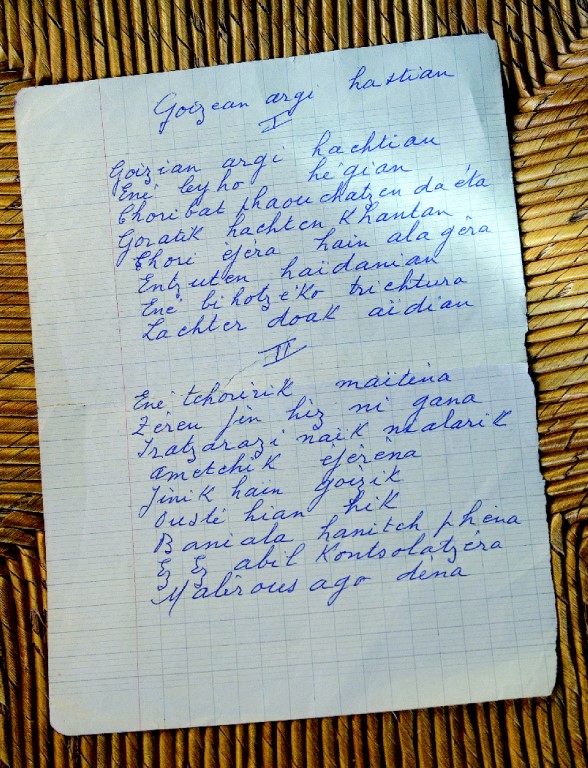 Goizean argi hastian
I
Goizian argi hachtian
Ené leyho hégian
Choribat phaouchatzen da éta
Goratik hachten Khantan
Chori éjéra hain alagéra
Entzuten haïdanian
Ené bihotzéko trichtura
Lachter doak aïdian
II
Ené tchoririk maïténa
Zéren jin hiz ni gana
Iratzarazi naik nialarik
ametchik ejérena
Jinik hain goizik
Ousté hian hik
Baniala hanitch phéna
Ez Ez abil Kontsolatzéra
Malérous ago déna